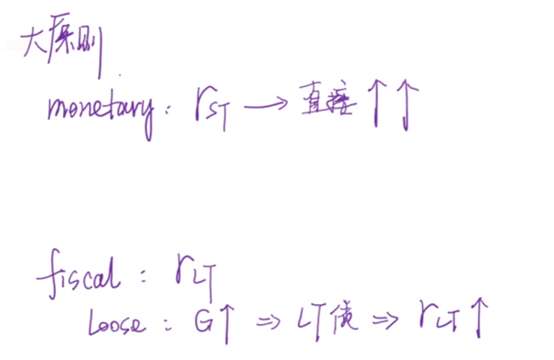 大原则
monetary: r_ST → 直接 ↑ ↑
fiscal: r_LT
Loose: G↑ ⇒ LT债 ⇒ r_LT ↑